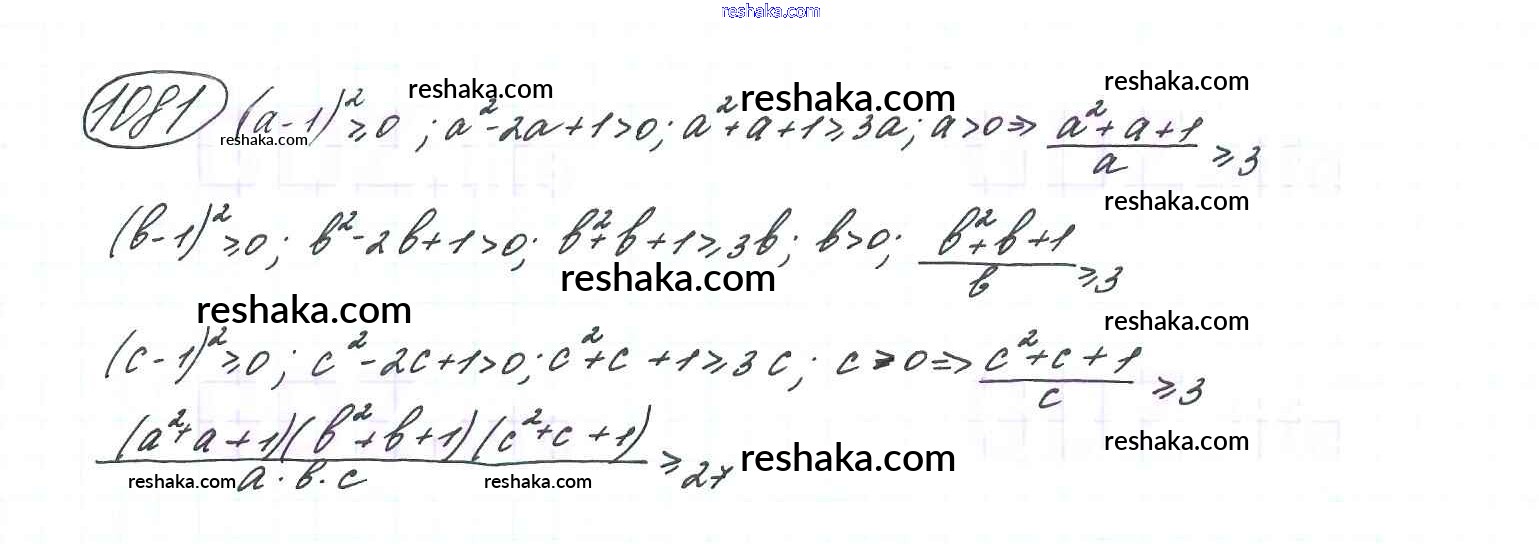 reshaka.com
1081 (a-1)² ≥ 0 ; a² - 2a + 1 > 0; a² + a + 1 ≥ 3a; a > 0 ⇒ (a² + a + 1)/a ≥ 3
reshaka.com reshaka.com reshaka.com
reshaka.com
(b-1)² ≥ 0; b² - 2b + 1 > 0; b² + b + 1 ≥ 3b; b > 0; (b² + b + 1)/b ≥ 3
reshaka.com
reshaka.com
reshaka.com
(c-1)² ≥ 0; c² - 2c + 1 > 0; c² + c + 1 ≥ 3c; c > 0 ⇒ (c² + c + 1)/c ≥ 3
reshaka.com
(a² + a + 1)(b² + b + 1)(c² + c + 1)/(a · b · c) ≥ 27
reshaka.com reshaka.com reshaka.com
reshaka.com